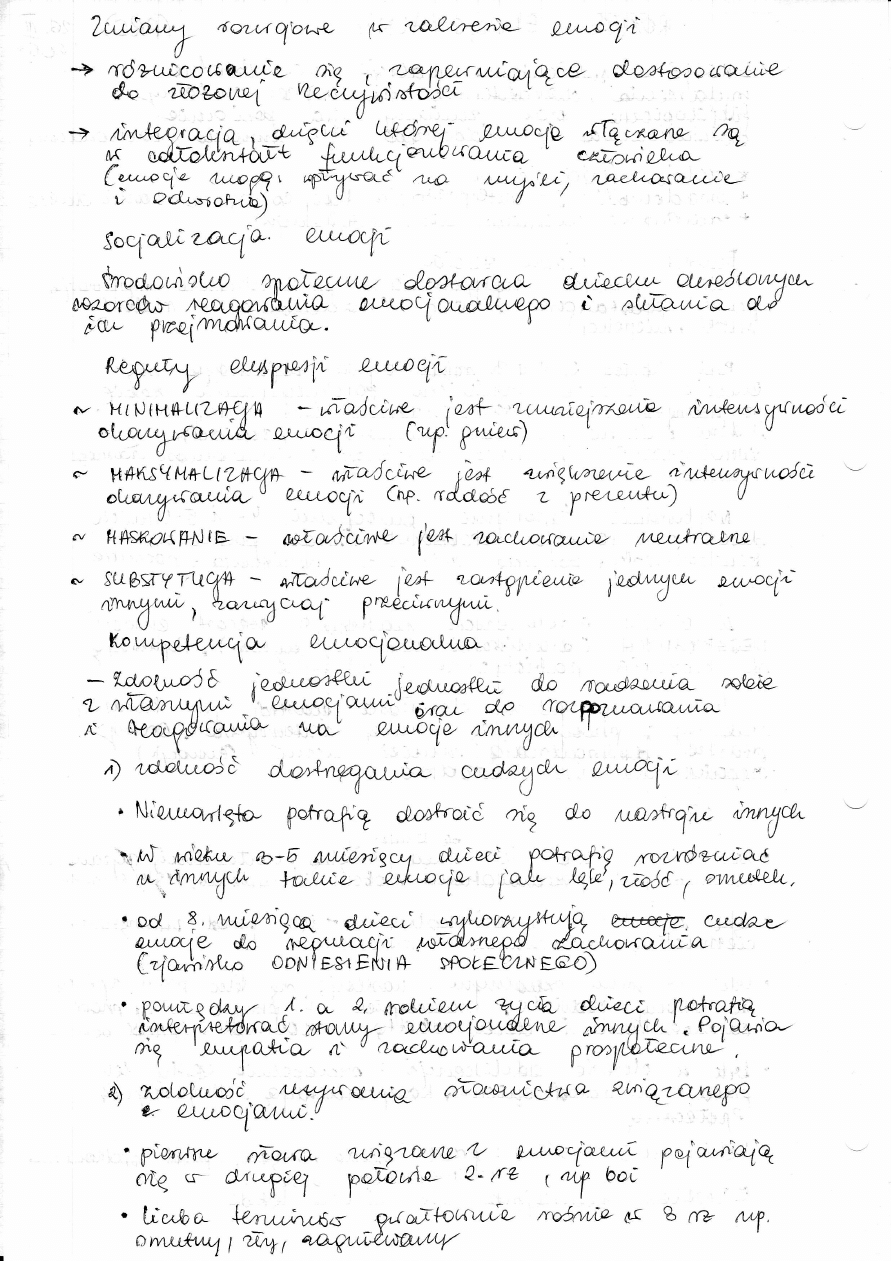 Zmiany rozwojowe w zakresie emocji
→ różnicowanie się, zapewniające dostosowanie
do złożonej rzeczywistości
→ integracja, dzięki której emocje włączane są
w całokształt funkcjonowania człowieka
(emocje mogą wpływać na myśli, zachowanie
i odwrotnie)
Socjalizacja emocji
Środowisko społeczne dostarcza dziecku określonych
wzorców reagowania emocjonalnego i skłania do
ich przejmowania.
Reguły ekspresji emocji
~ MINIMALIZACJA - właściwe jest zmniejszenie intensywności
okazywania emocji (np. gniew)
~ MAKSYMALIZACJA - właściwe jest zwiększenie intensywności
okazywania emocji (np. radość z prezentu)
~ MASKOWANIE - właściwe jest zachowanie neutralne
~ SUBSTYTUCJA - właściwe jest zastąpienie jednych emocji
innymi, zazwyczaj przeciwnymi.
Kompetencja emocjonalna
- Zdolność jednostki jednostki do radzenia sobie
z własnymi emocjami oraz do rozpoznawania
i reagowania na emocje innych
1) zdolność dostrzegania cudzych emocji
• Niemowlęta potrafią dostroić się do nastroju innych
• W wieku 3-5 miesięcy dzieci potrafią rozróżniać
u innych takie emocje jak lęk, złość, smutek.
• od 8. miesiąca dzieci wykorzystują emocje cudze
emocje do regulacji własnego zachowania
(zjawisko ODNIESIENIA SPOŁECZNEGO)
• pomiędzy 1. a 2. rokiem życia dzieci potrafią
interpretować stany emocjonalne innych. Pojawia
się empatia i zachowania prospołeczne.
2) zdolność używania słownictwa związanego
z emocjami.
• pierwsze słowa związane z emocjami pojawiają
się w drugiej połowie 2. rż, np boi
• liczba terminów gwałtownie rośnie w 3 rż np.
smutny, zły, zagniewany